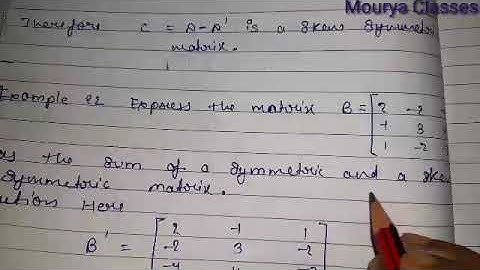 Mourya Classes
Therefore C = A-A' is a skew symmetric
matrix.
Example 22 Express the matrix B = [ 2 -2
-1 3
1 -2
as the sum of a symmetric and a skew
symmetric matrix.
Here
B' = [ 2 -1 1
-2 3 -2
-4